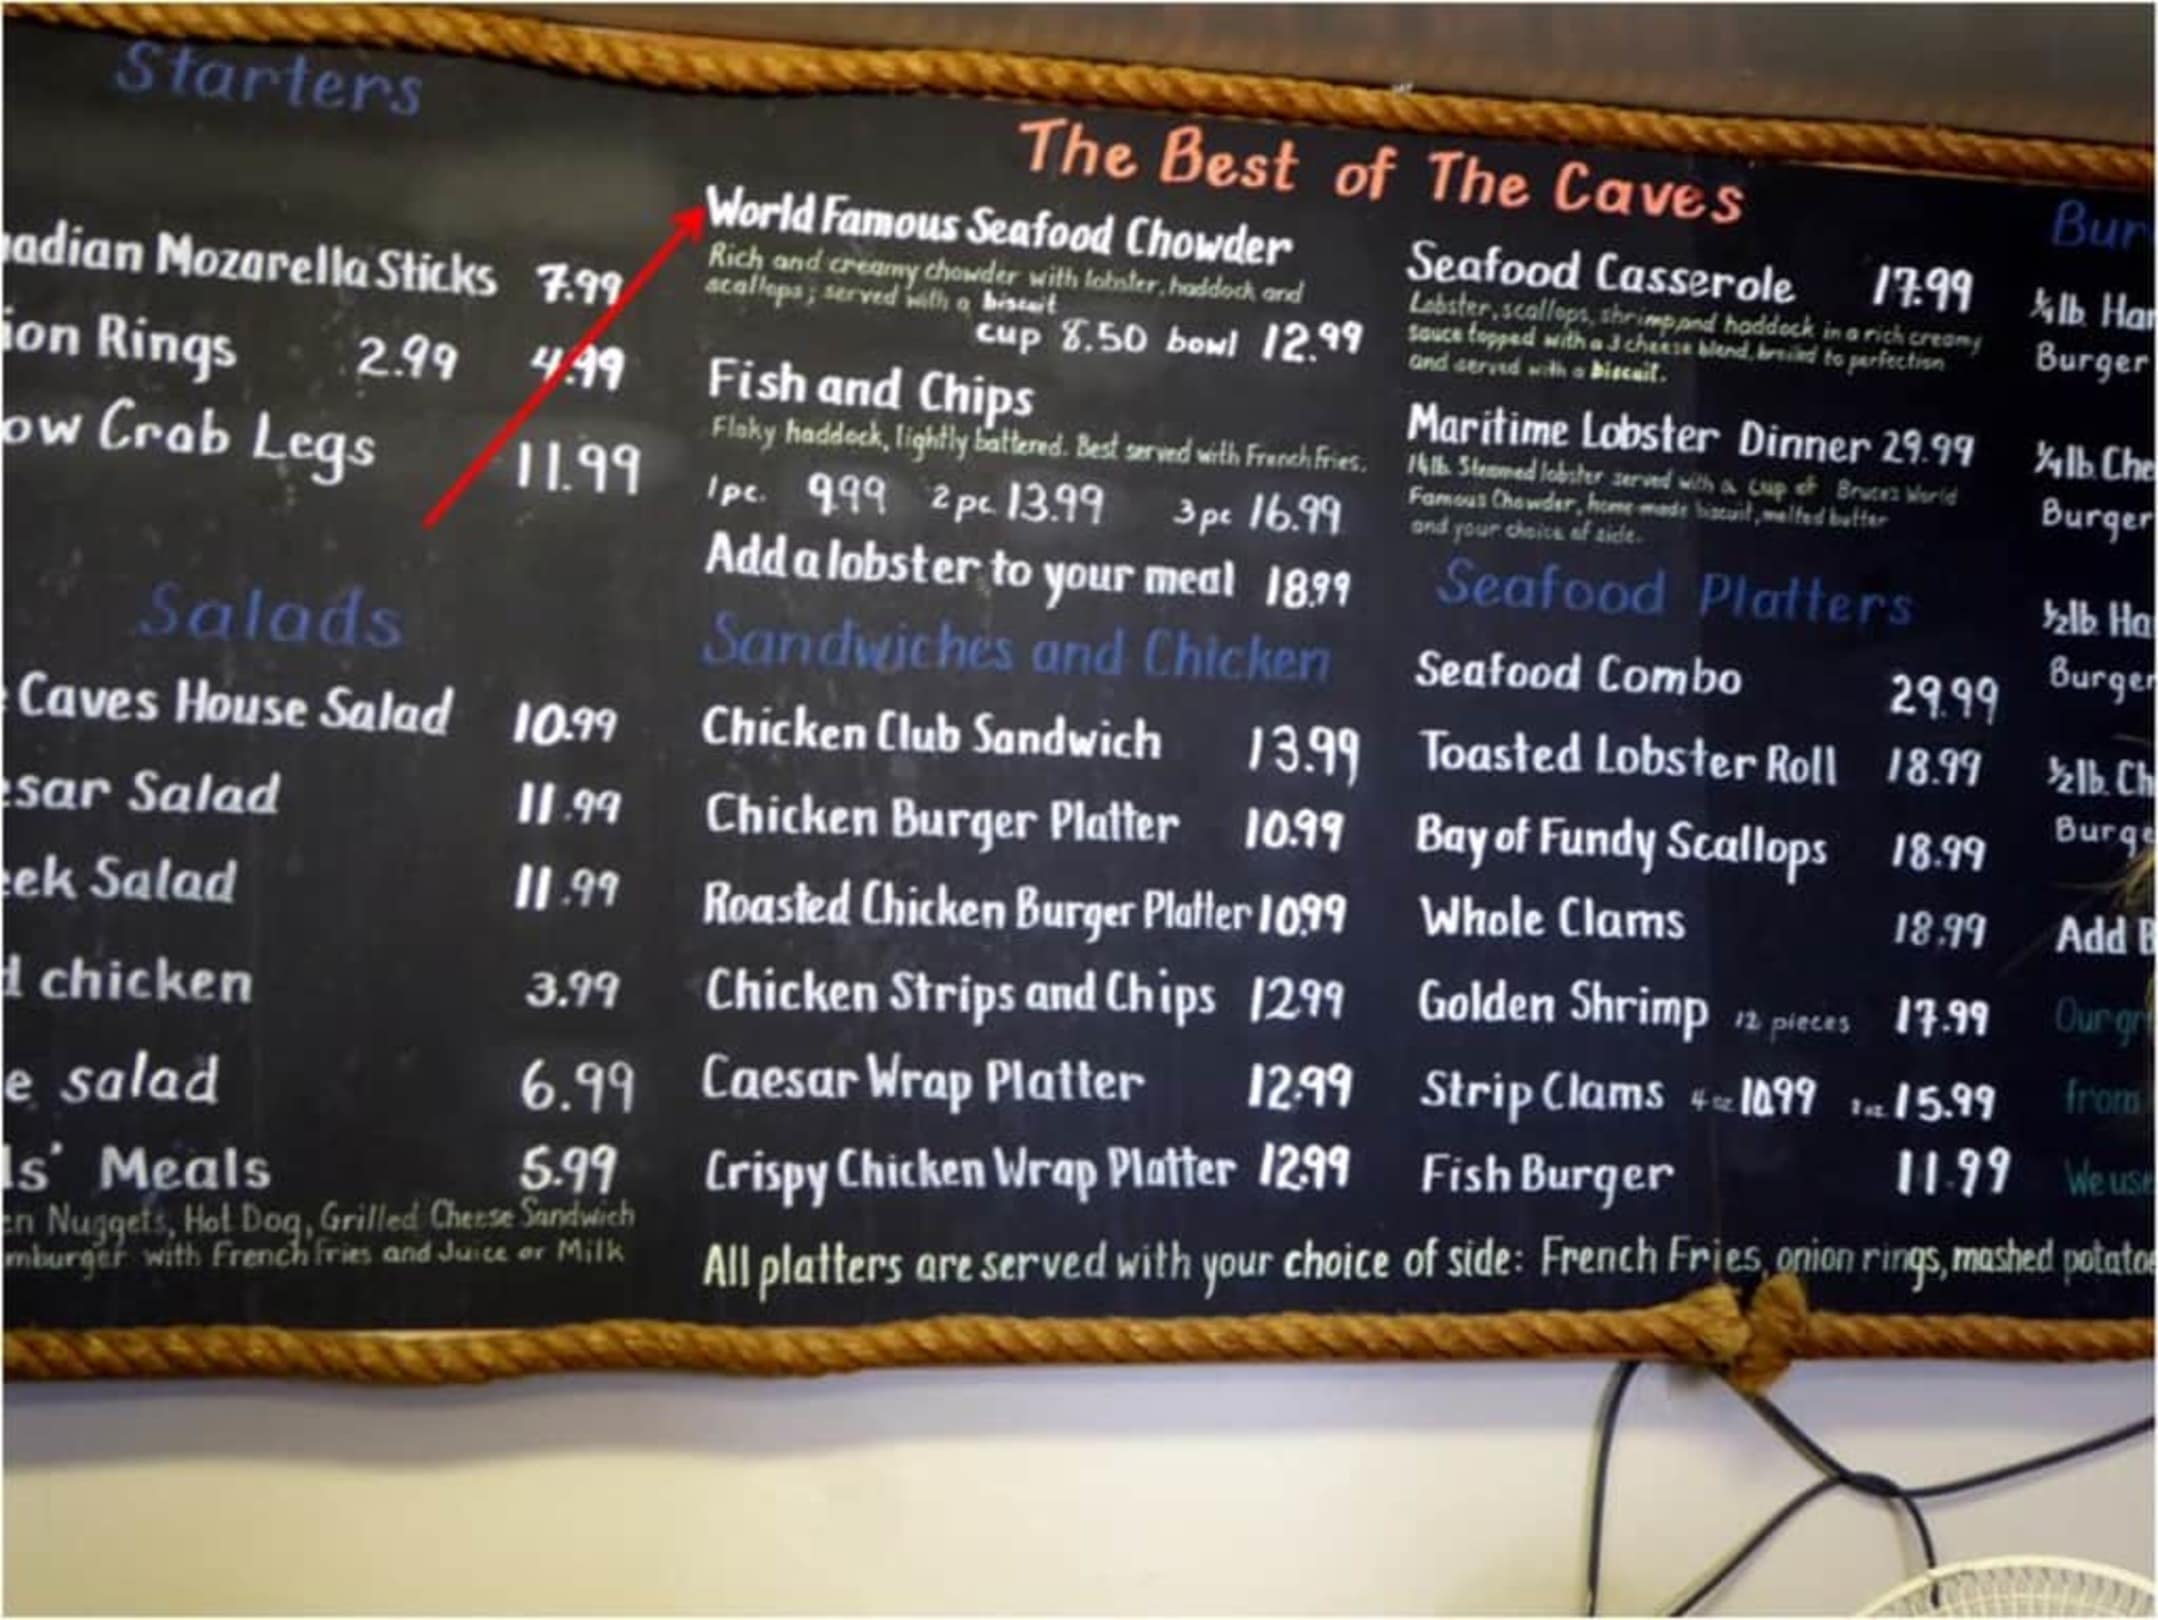 Starters
adian Mozarella Sticks 7.99
ion Rings 2.99 4.99
ow Crab Legs 11.99
Salads
Caves House Salad 10.99
sar Salad 11.99
ek Salad 11.99
d chicken 3.99
e salad 6.99
ls' Meals 5.99
en Nuggets, Hot Dog, Grilled Cheese Sandwich
mburger with French fries and Juice or Milk
The Best of The Caves
World Famous Seafood Chowder
Rich and creamy chowder with lobster, haddock and
scallops; served with a biscuit
cup 8.50 bowl 12.99
Fish and Chips
Flaky haddock, lightly battered. Best served with French Fries.
1 pc. 9.99 2 pc 13.99 3 pc 16.99
Add a lobster to your meal 18.99
Sandwiches and Chicken
Chicken Club Sandwich 13.99
Chicken Burger Platter 10.99
Roasted Chicken Burger Platter 10.99
Chicken Strips and Chips 12.99
Caesar Wrap Platter 12.99
Crispy Chicken Wrap Platter 12.99
Seafood Casserole 17.99
Lobster, scallops, shrimp, and haddock in a rich creamy
sauce topped with a 3 cheese blend, broiled to perfection
and served with a biscuit.
Maritime Lobster Dinner 29.99
Steamed lobster served with a cup of Bruce's World
Famous Chowder, home-made biscuit, melted butter
and your choice of side.
Seafood Platters
Seafood Combo 29.99
Toasted Lobster Roll 18.99
Bay of Fundy Scallops 18.99
Whole Clams 18.99
Golden Shrimp 12 pieces 17.99
Strip Clams 4 oz 10.99 15.99
Fish Burger 11.99
All platters are served with your choice of side: French Fries, onion rings, mashed potatoe
Bur
¼lb. Ham
Burger
¼lb. Che
Burger
½lb. Ha
Burger
½lb. Ch
Burge
Add B
Our gr
from
We use